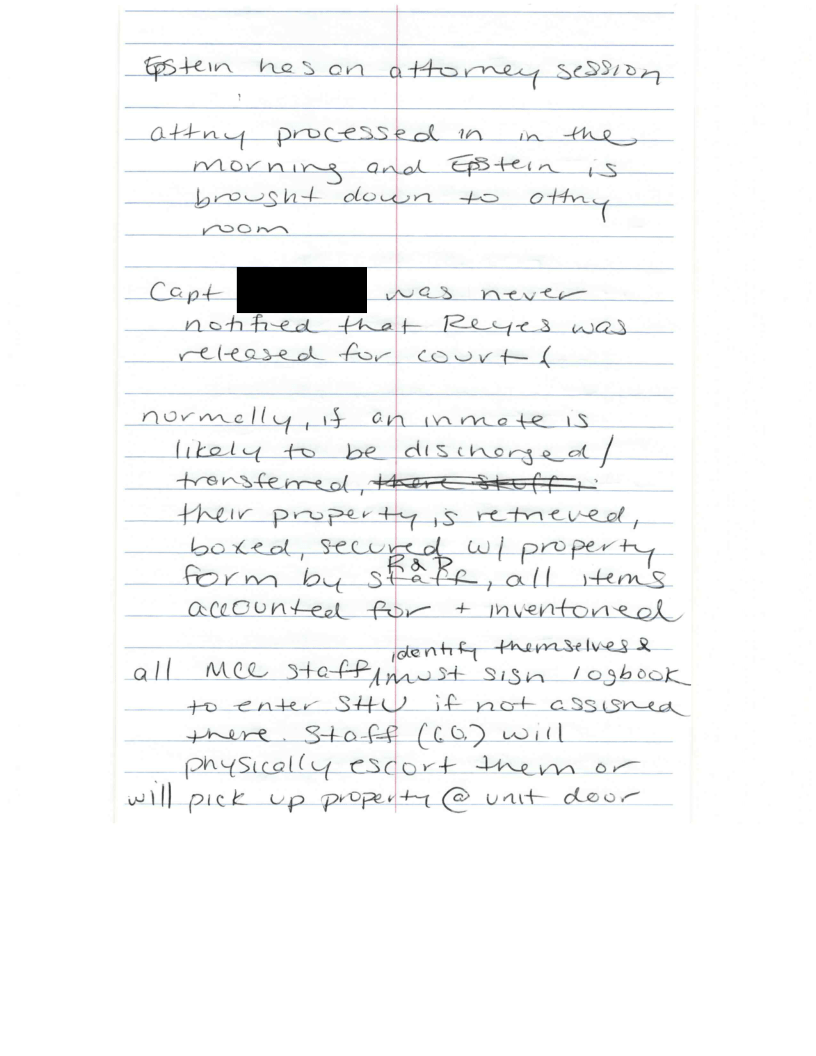 Epstein has an attorney session
attny processed in in the
morning and Epstein is
brought down to attny
room
Capt was never
notified that Reyes was
released for court (
normally, if an inmate is
likely to be discharged/
transferred, there stuff i
their property is retrieved,
boxed, secured w/ property
R & D
form by staff, all items
accounted for + inventoried
identify themselves &
all MCC staff must sign logbook
to enter SHU if not assigned
there. Staff (CO) will
physically escort them or
will pick up property @ unit door